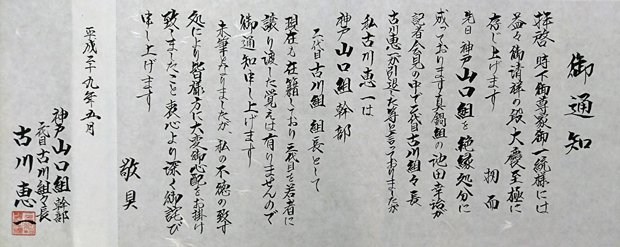 御通知
拝啓 時下御尊家御一統様には
益々御清祥の段大慶至極に
存じ上げます 扨而
先日神戸山口組を絶縁処分に
成っております真鍋組の池田幸治が
記者会見の中で二代目古川組々長
古川恵一が引退した等と言っておりましたが
私古川恵一は
神戸山口組幹部
二代目古川組組長として
現在も在籍しており三代目を若者に
譲り渡した覚えは有りませんので
御通知申し上げます
末筆となりましたが、私の不徳の致す
処により皆様方に大変御心配をお掛け
致しましたこと衷心より深く御詫び
申し上げます
敬具
平成二十九年五月
神戸山口組幹部
二代目古川組々長
古川恵一